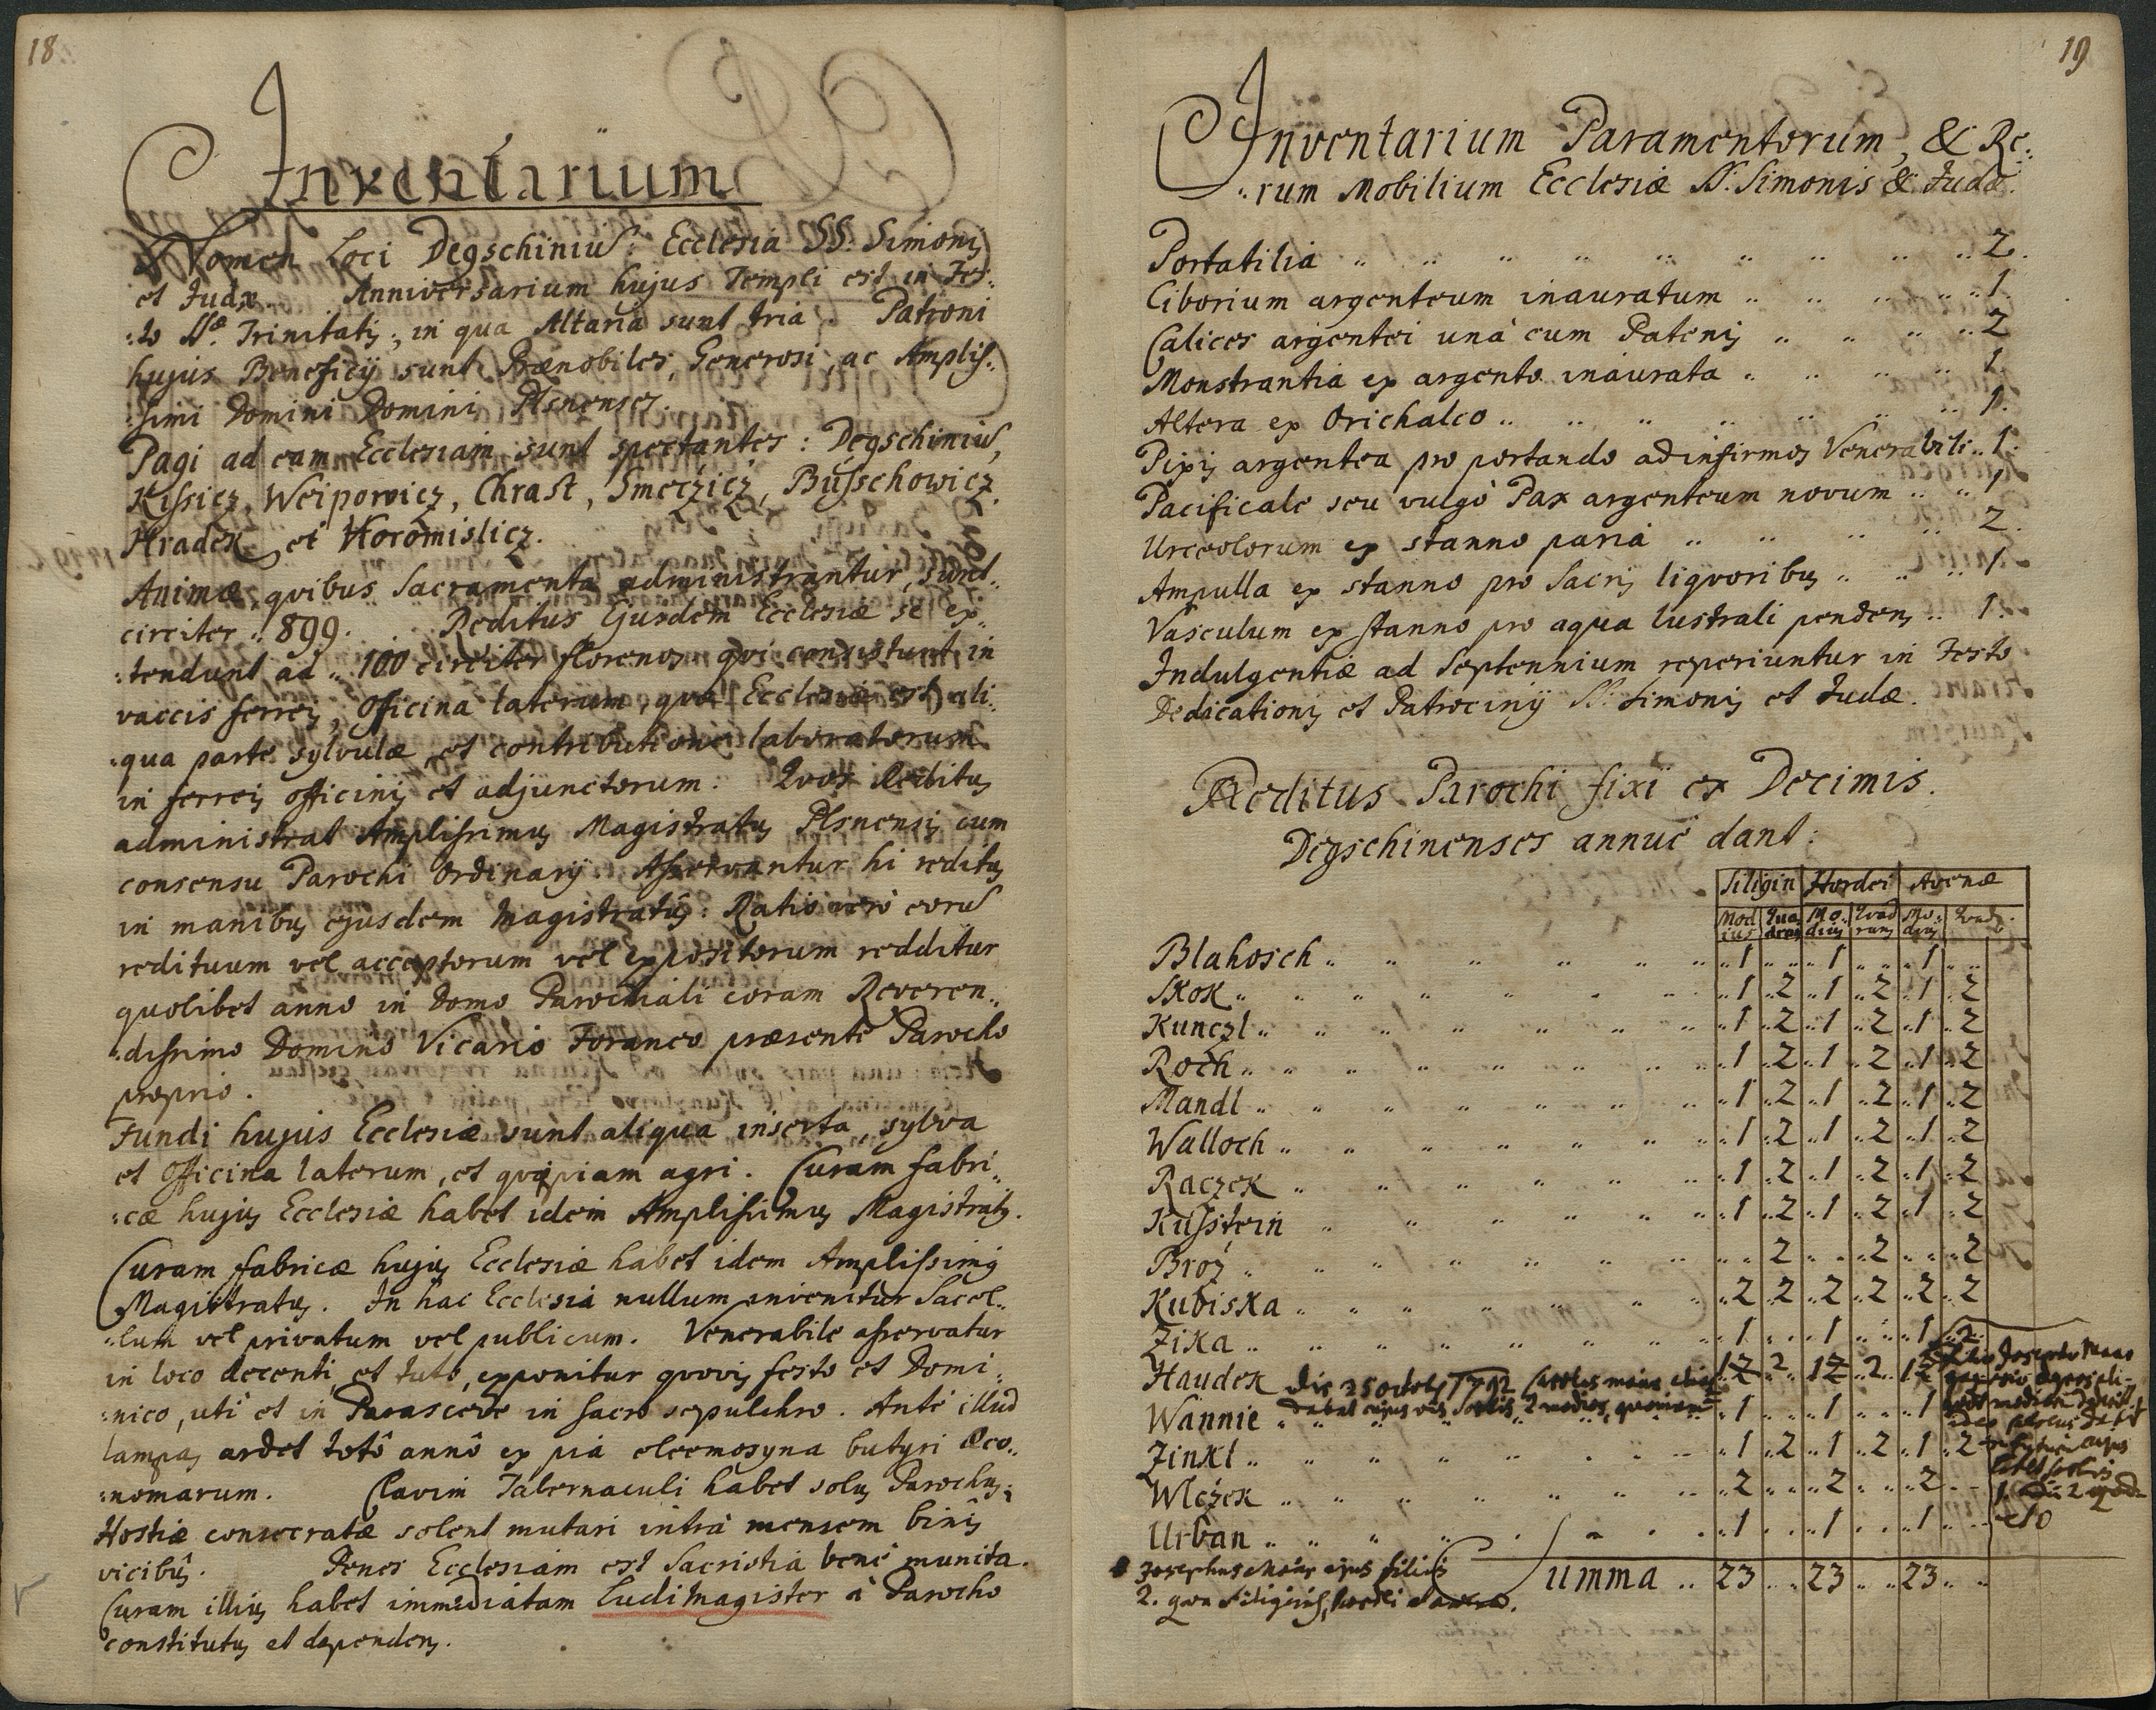 18
Inventarium
Nomen Loci Degschiniu. Ecclesia SS. Simonis
et Judæ. Anniversarium hujus Templi est in Fes„
„to SSæ Trinitatis, in qua Altaria sunt tria. Patroni
hujus Beneficij sunt Prænobiles, Generosi, ac Amplis„
„simi Domini Domini Plsnenses.
Pagi ad eam Ecclesiam sunt spectantes: Degschiniu,
Kissicz, Weipowicz, Chrast, Smeczicz, Busschowicz
Hradek et Horomislicz.
Animæ, qvibus Sacramenta administrantur, sunt
circiter „ 899. Reditus Ejusdem Ecclesiæ se ex„
„tendunt ad „ 100 circiter florenos, qvi consistunt in
vaccis ferreis, Officina laterum, qvæ Ecclesiæ est, ali„
„qua parte sylvulæ, et contributione laboratorum
in ferreis officinis et adjunctorum. Qvos Reditus
administrat Amplissimus Magistratus Plsnensis cum
consensu Parochi Ordinarij. Asservantur hi reditus
in manibus ejusdem Magistratûs. Ratio verò eoru
redituum vel acceptorum vel expositorum redditur
quolibet anno in Domo Parochiali coram Reveren„
„dissimo Domino Vicario Foraneo præsente Parocho
proprio.
Fundi hujus Ecclesiæ sunt aliqua inserta, sylva
et Officina laterum, et qvipiam agri. Curam fabri„
„cæ hujus Ecclesiæ habet idem Amplissimus Magistratus.
Curam fabricæ hujus Ecclesiæ habet idem Amplissimus
Magistratus. In hac Ecclesia nullum invenitur Sacel„
„lum vel privatum vel publicum. Venerabile asservatur
in loco decenti, et tuto, exponitur qvovis festo et Domi„
„nico, uti et in Parasceve in sacro sepulchro. Ante illud
lampas ardet totô annô ex pia eleemosyna butyri Œco„
„nomarum. Clavim Tabernaculi habet solus Parochus;
Hostiæ consecratæ solent mutari intrà mensem binis
vicibus. Penes Ecclesiam est Sacristia benè munita.
Curam illius habet immediatam Ludimagister à Parocho
constitutus et dependens.
19
Inventarium Paramentorum, & Re„
„rum Mobilium Ecclesiæ SS. Simonis & Judæ.
Portatilia „ 2.
Ciborium argenteum inauratum „ 1.
Calices argentei unà cum Patenis „ 2
Monstrantia ex argento inaurata „ 1.
Altera ex Orichalco „ 1.
Pixis argentea pro portando ad infirmos Venerabili „ 1.
Pacificale seu vulgò Pax argenteum novum „ 1
Urceolorum ex stanno paria „ 2.
Ampulla ex stanno pro Sacris liqvoribus „ 1.
Vasculum ex stanno pro aqua lustrali pendens „ 1.
Indulgentiæ ad Septennium reperiuntur in Festo
Dedicationis et Patrocinij SS. Simonis et Judæ.
Reditus Parochi fixi ex Decimis.
Degschinenses annuè dant:
Siligin Hordei Avenæ
Mod ius Qua drans Mo„ dius Qvad rans Mo„ dius Qvad.
Blahosch „ 1 „ 1 „ 1
Skok „ 1 2 1 2 1 2
Kunczl „ 1 2 1 2 1 2
Roch „ 1 2 1 2 1 2
Mandl „ 1 2 1 2 1 2
Walloch „ 1 2 1 2 1 2
Raczek „ 1 2 1 2 1 2
Kusstein „ 1 2 1 2 1 2
Broz „ 2 2 2
Kubiska „ 2 2 2 2 2 2
Zika „ 1 1 1
Haudek Die 25 octob 1 2 2 1 2 2 1 2
Wannie „ 1 1 1
Zinkl „ 1 2 1 2 1 2
Wlczek „ 2 2 2
Urban „ 1 1 1
Summa „ 23 23 23
Josephus ejus filius
2. qua siliginis, hordei